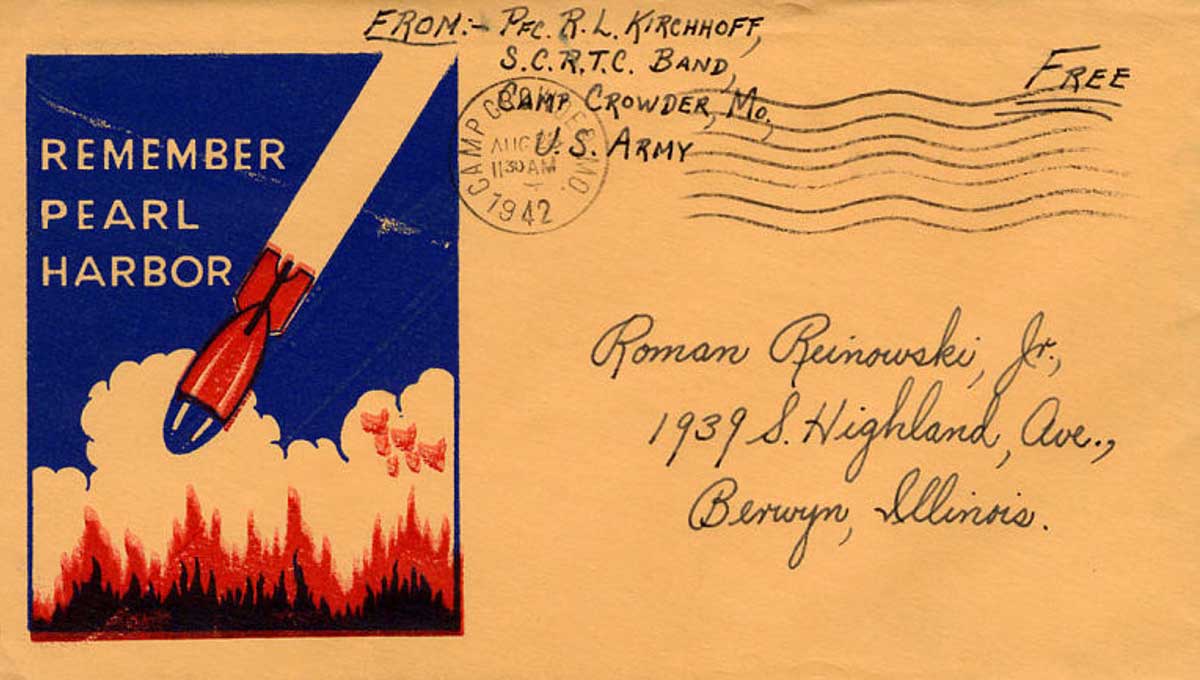 FROM:- PFC. R. L. KIRCHHOFF,
S.C.R.T.C. BAND,
CAMP CROWDER, MO.,
U.S. ARMY
FREE
CAMP CROWDER, MO.
AUG
11 30 AM
1942
REMEMBER
PEARL
HARBOR
Roman Reinowski, Jr.,
1939 S. Highland, Ave.,
Berwyn, Illinois.